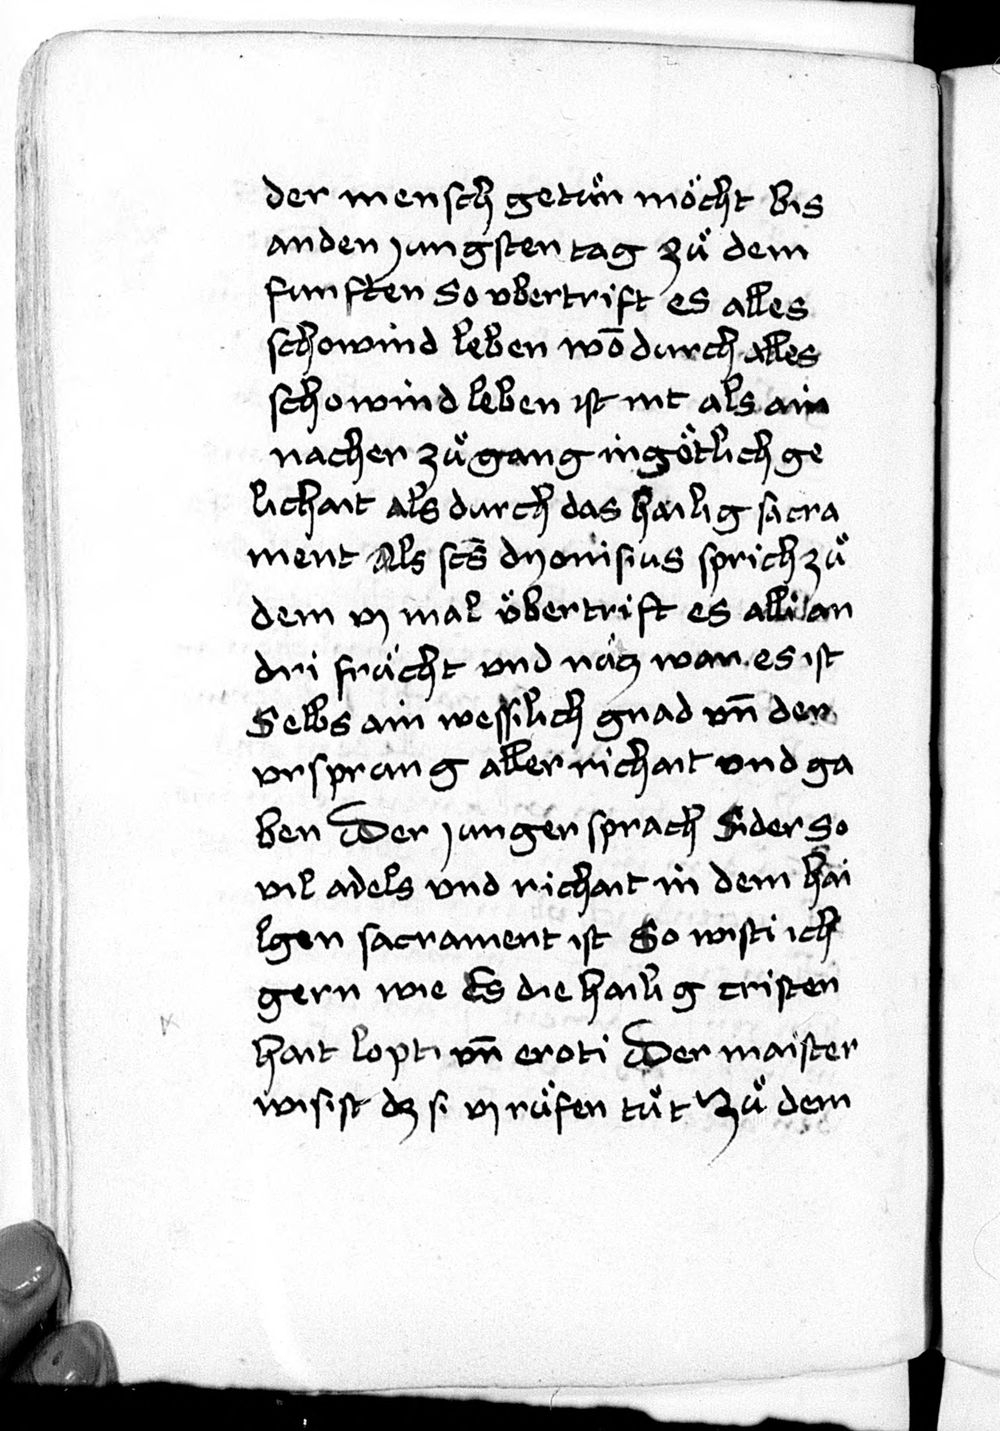 der mensch getuͦn möcht bis
an den jungsten tag zuͦ dem
funften So vbertrift es alles
schowind leben wō durch alles
schowind leben ist nit als ain
nacher zuͦgang in götlich ge
lichait als durch das hailig sacra
ment Als scts̄ dyonisius sprich zuͦ
dem vj mal übertrift es alli an
dri frücht vnd nücz wan es ist
Selbs ain wessilich gnad vn̄ der
vrsprung aller richait vnd ga
ben Der junger sprach Sider so
vil adels vnd richait in dem hai
lgen sacrament ist So wisti ich
gern wie Es die hailig cristen
hait lopti vn̄ eroti Der maister
wisist dz si vj rüfen tuͦt Zuͦ dem